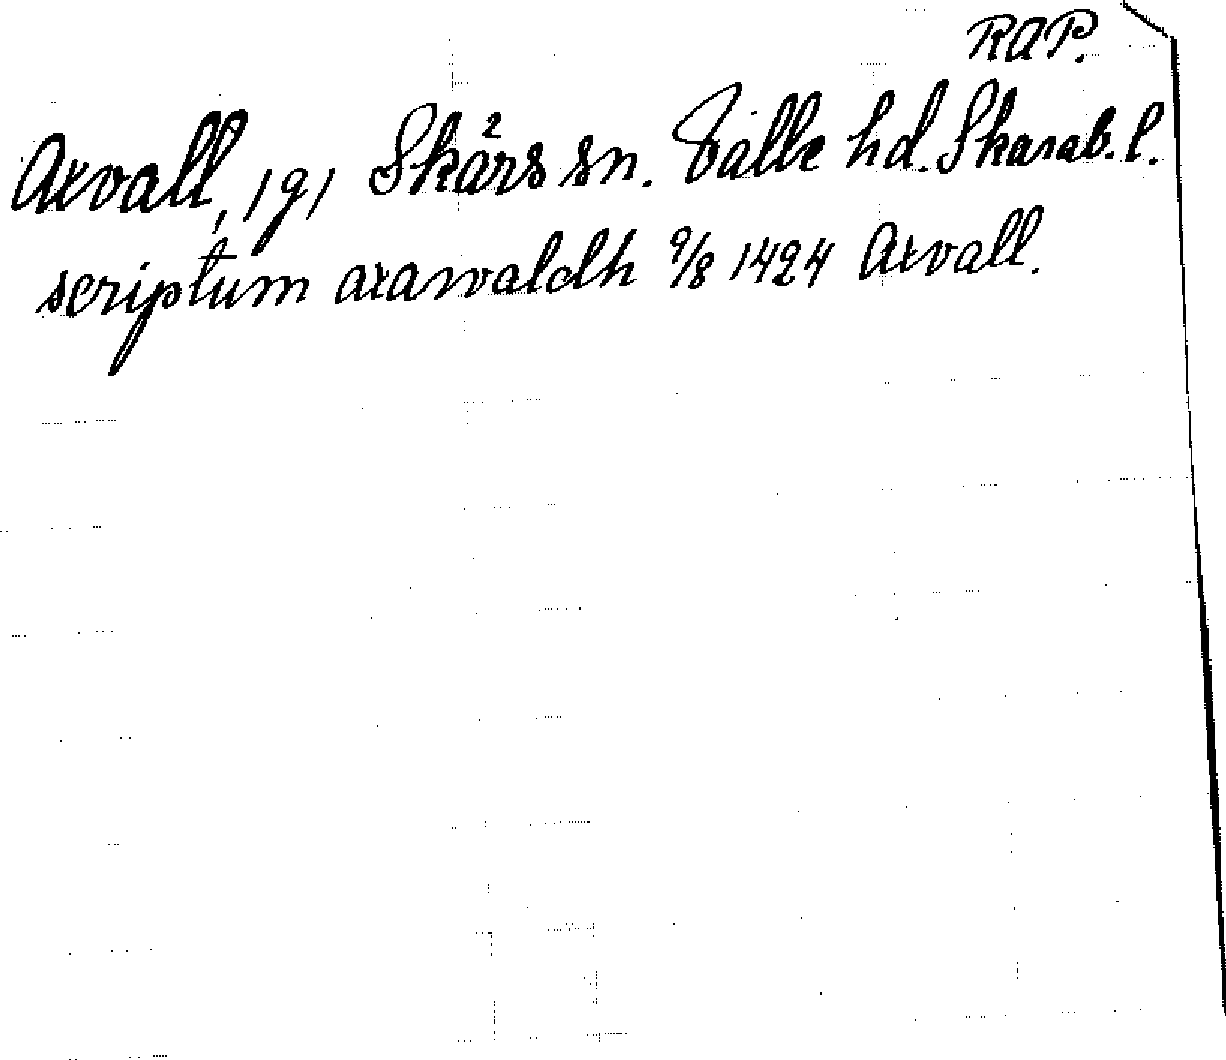 RAP.
Axvall, /g/ Skärs sn. Valle hd. Skarab. l.
scriptum axawaldh 9/8 1424 Axvall.